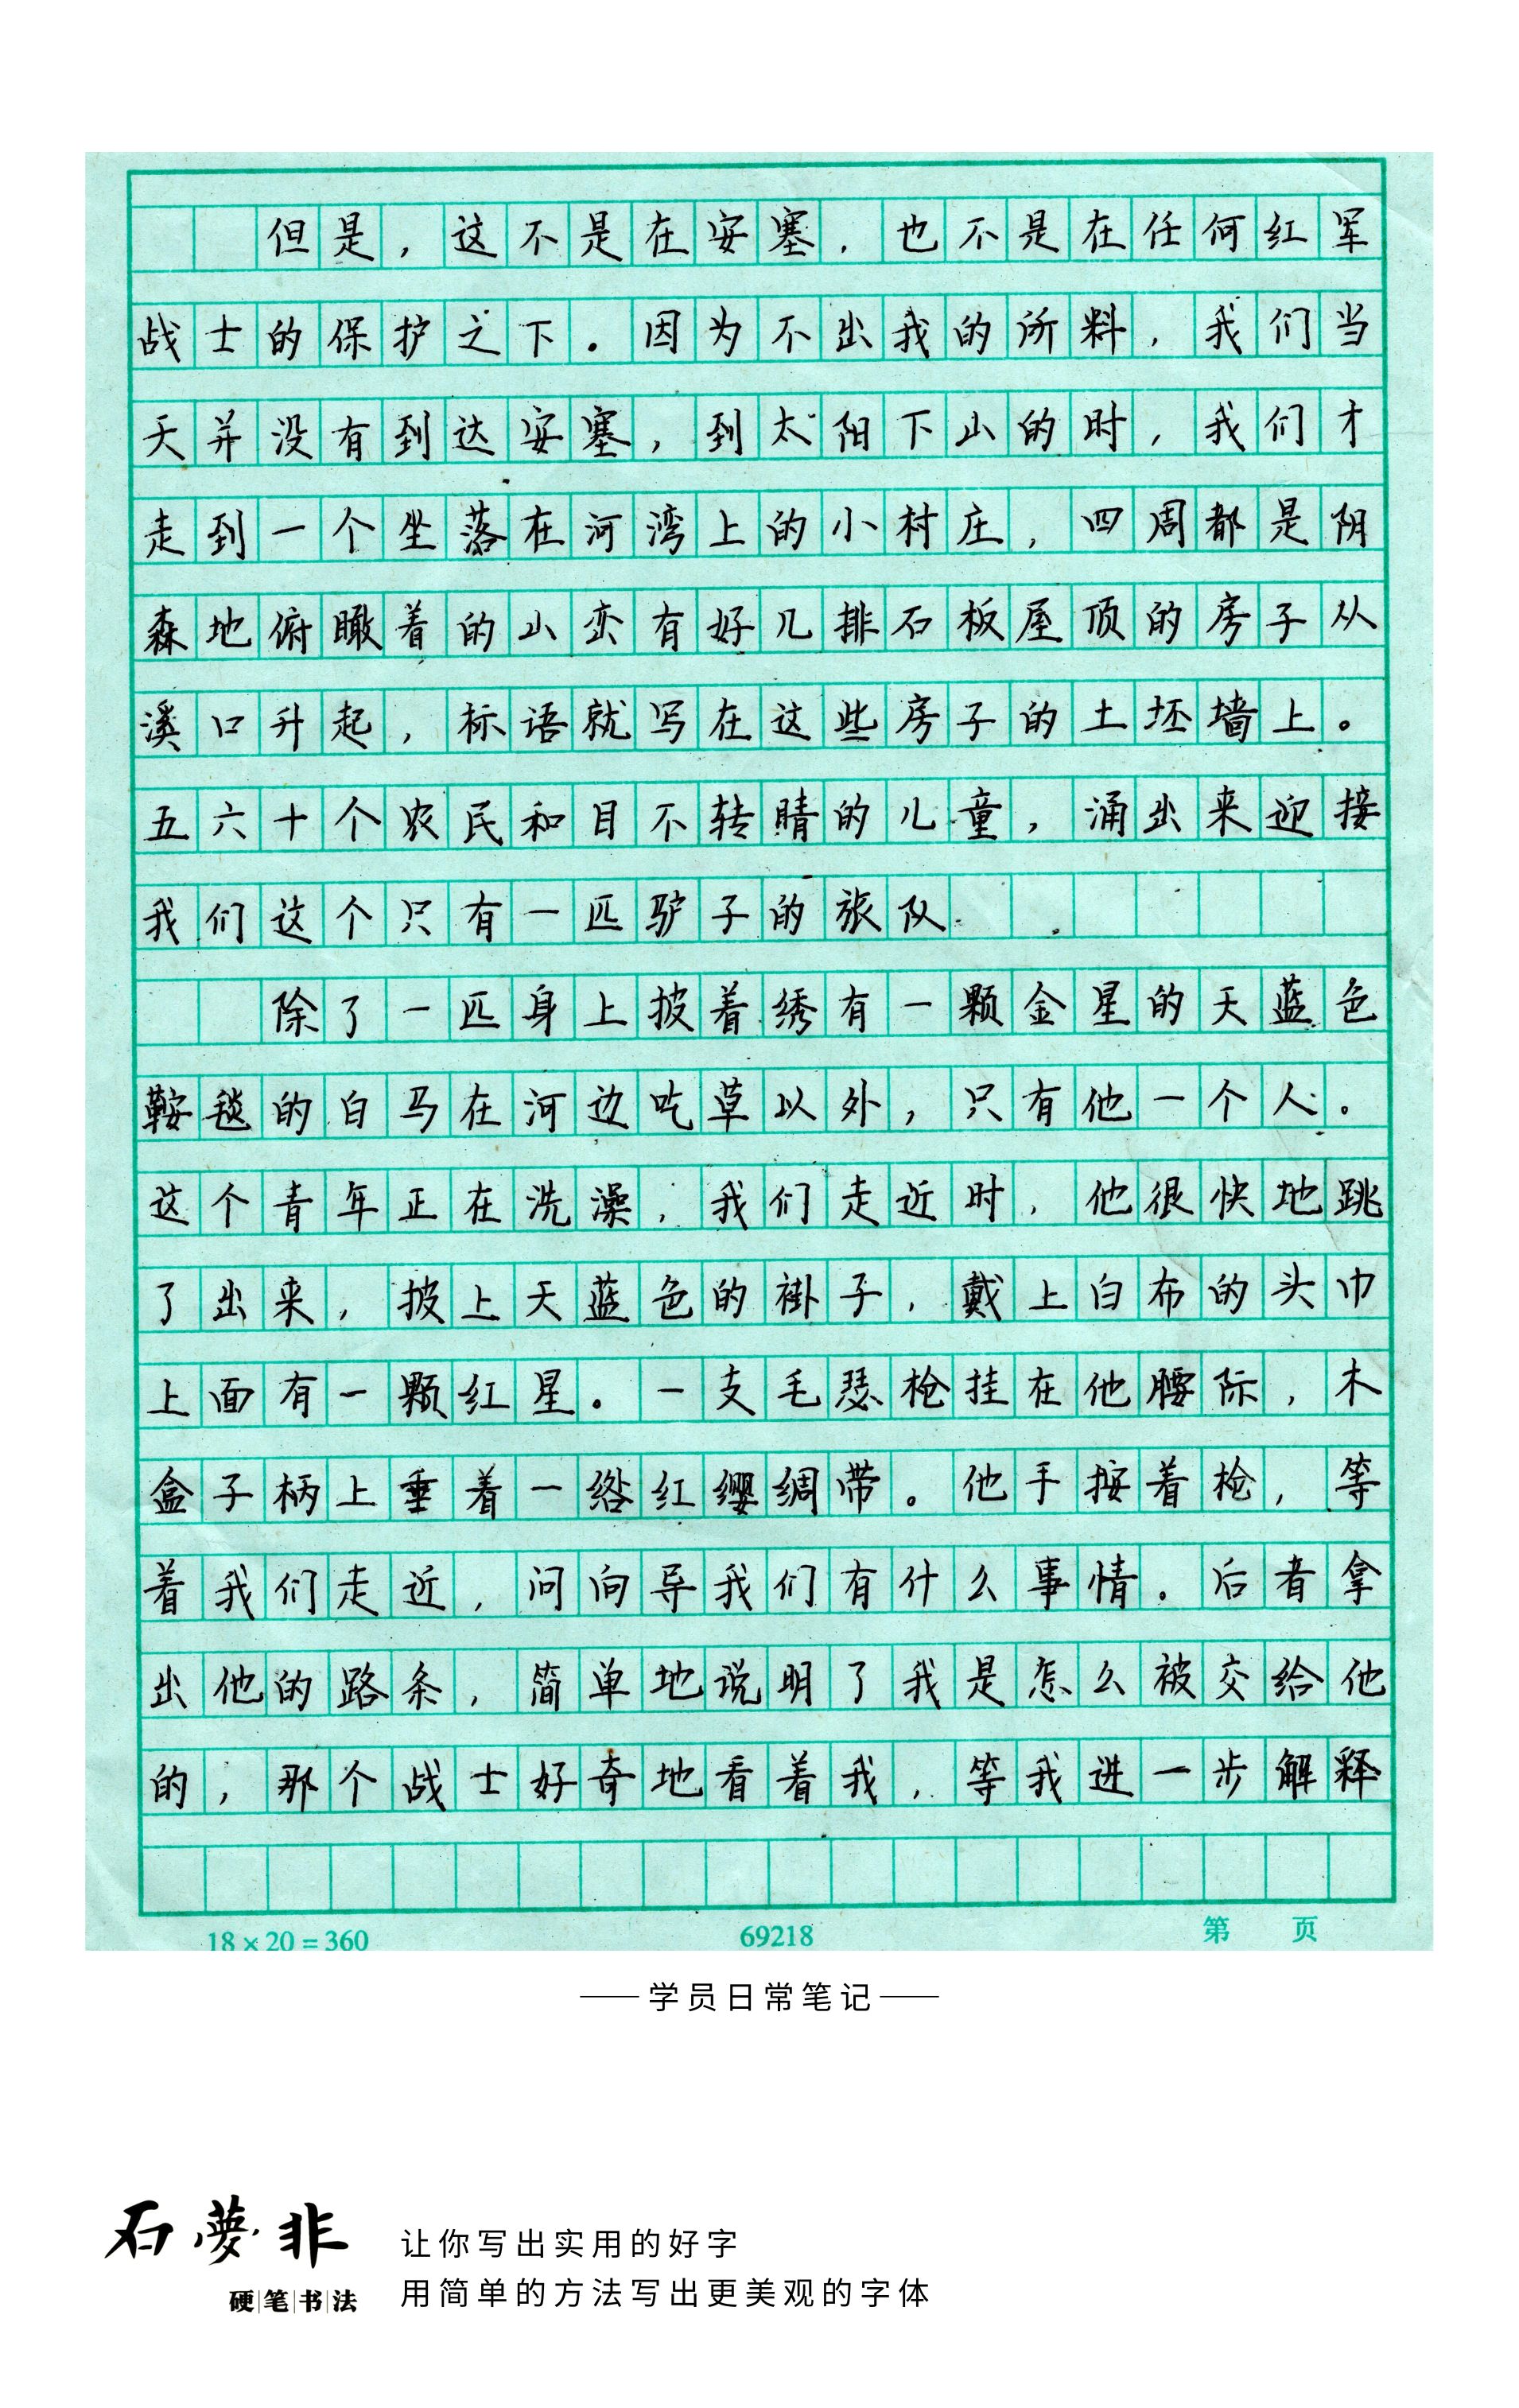 但是，这不是在安塞，也不是在任何红军
战士的保护之下。因为不出我的所料，我们当
天并没有到达安塞，到太阳下山的时，我们才
走到一个坐落在河湾上的小村庄，四周都是阴
森地俯瞰着的山峦有好几排石板屋顶的房子从
溪口升起，标语就写在这些房子的土坯墙上。
五六十个农民和目不转睛的儿童，涌出来迎接
我们这个只有一匹驴子的旅队
除了一匹身上披着绣有一颗金星的天蓝色
鞍毯的白马在河边吃草以外，只有他一个人。
这个青年正在洗澡，我们走近时，他很快地跳
了出来，披上天蓝色的褂子，戴上白布的头巾
上面有一颗红星。一支毛瑟枪挂在他腰际，木
盒子柄上垂着一绺红缨绸带。他手按着枪，等
着我们走近，问向导我们有什么事情。后者拿
出他的路条，简单地说明了我是怎么被交给他
的，那个战士好奇地看着我，等我进一步解释
18×20=360 69218 第 页
学员日常笔记
石夢非
硬笔书法
让你写出实用的好字
用简单的方法写出更美观的字体